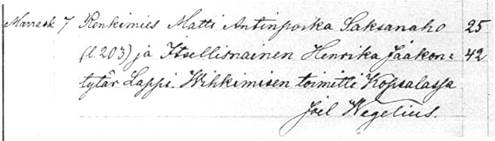 Marrask 7 Renkimies Matti Antinpoika Saksanaho 25
(l. 203) ja Itsellisnainen Henrika Jaakon= 42
tytär Lappi. Wihkimisen toimitti Kopsalassa
Joel Wegelius.